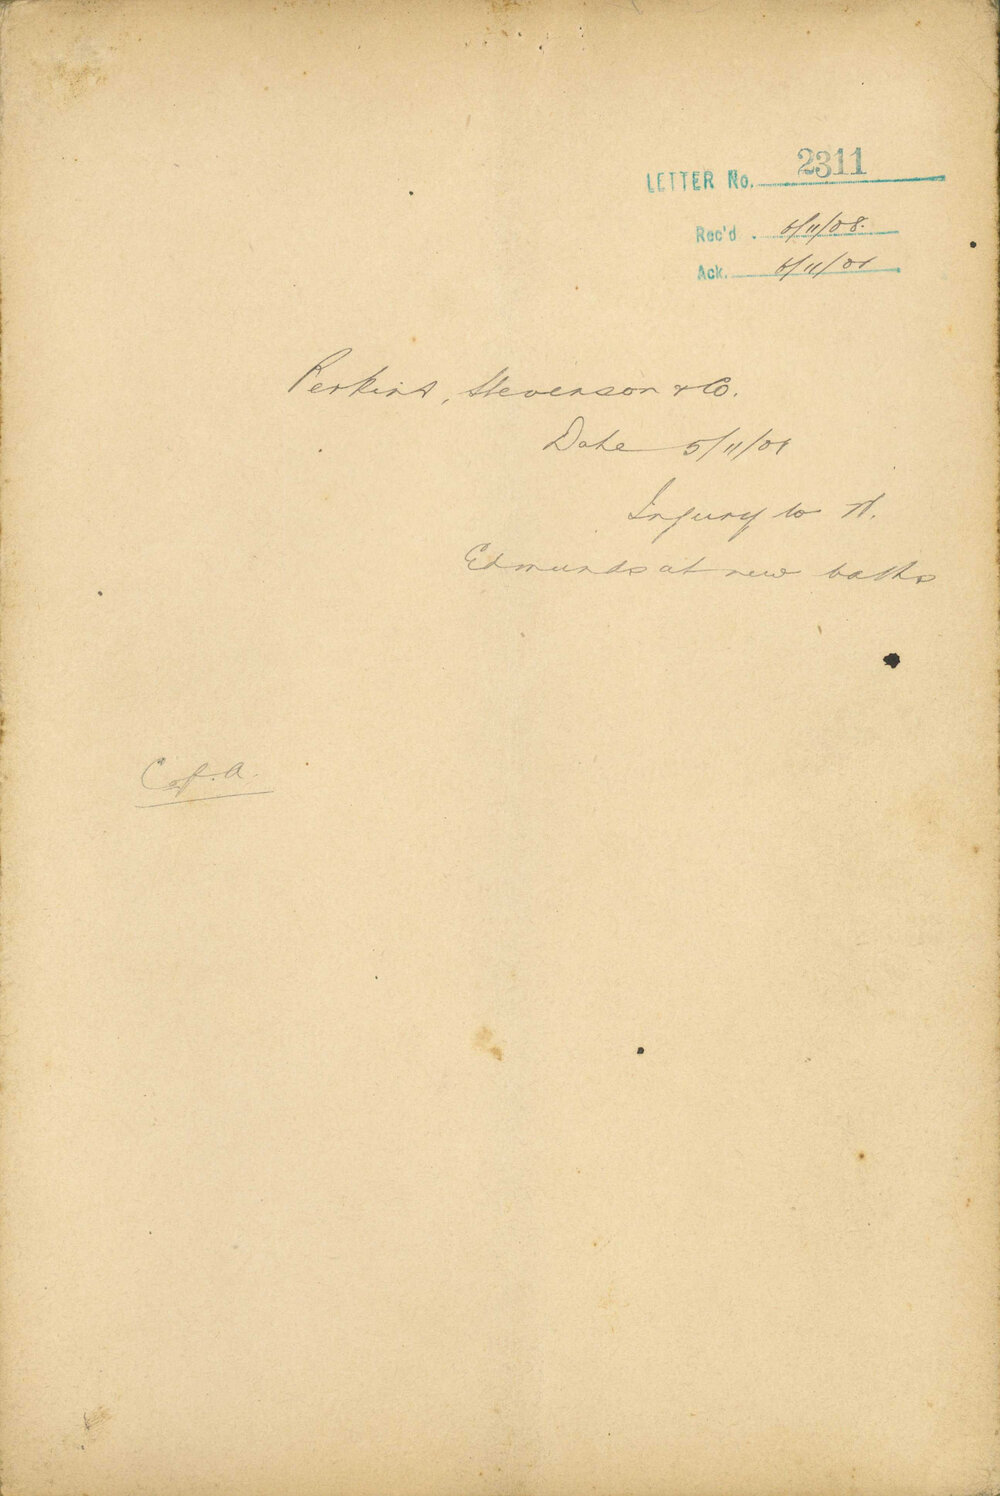 LETTER No. 2311
Rec'd 6/11/08.
Ack. 6/11/08
Perkins, Stevenson & Co.
Date 5/11/08
Injury to A.
Edmunds at new baths